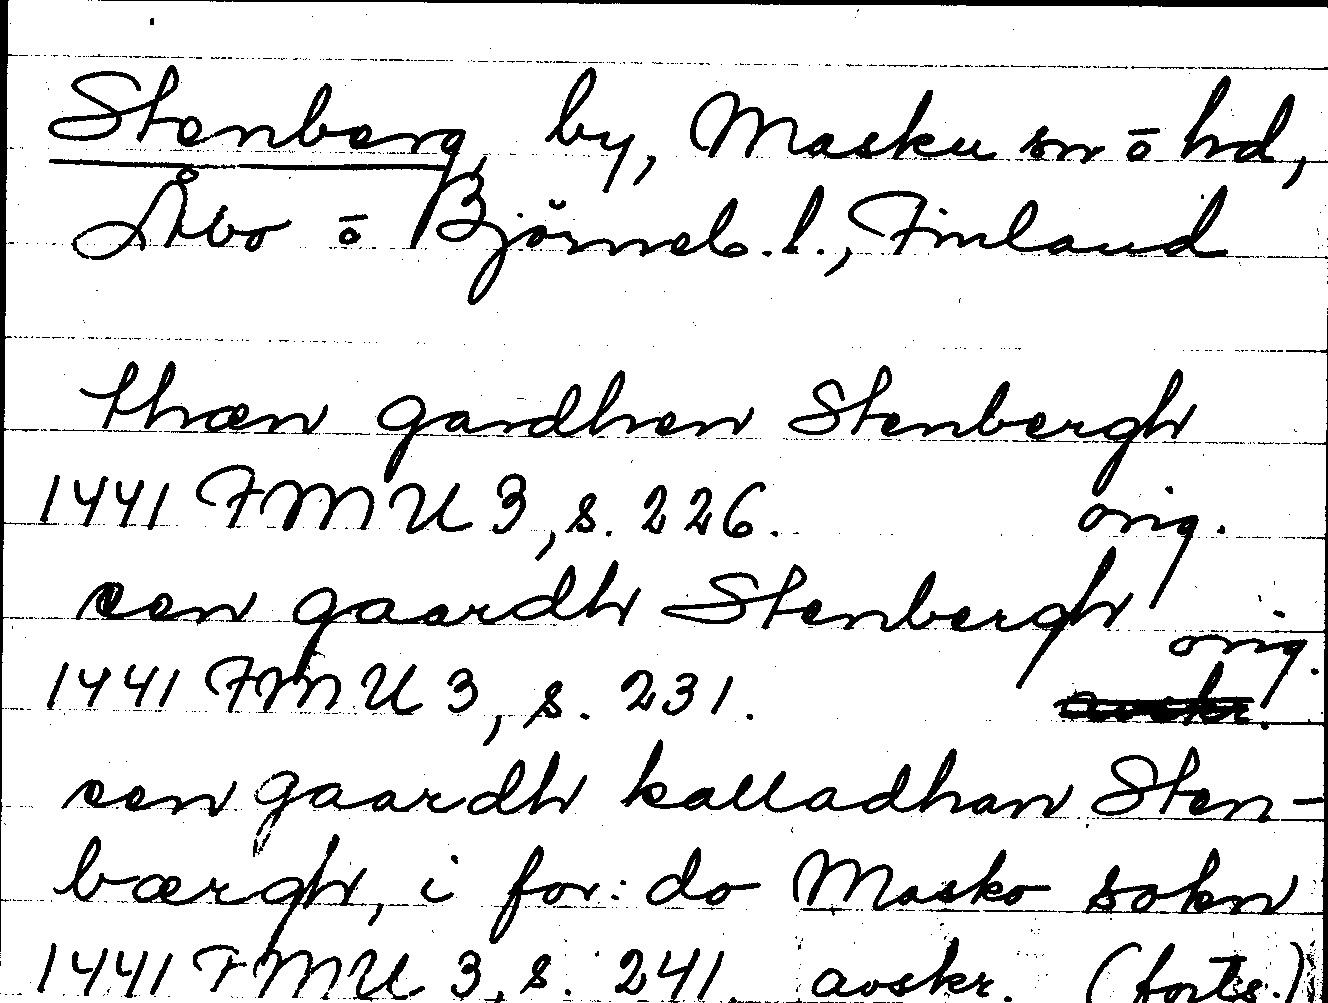 Stenberg, by, Masku sn o hd,
Åbo o Björneb. l., Finland
thæn gardhen Stenbergh
1441 FMU 3, s. 226. orig.
een gaardh Stenbergh
orig.
1441 FMU 3, s. 231. avskr.
een gaardh kalladhan Sten-
bærgh, i for: do Masko sokn
1441 FMU 3, s. 241. avskr. (forts.)